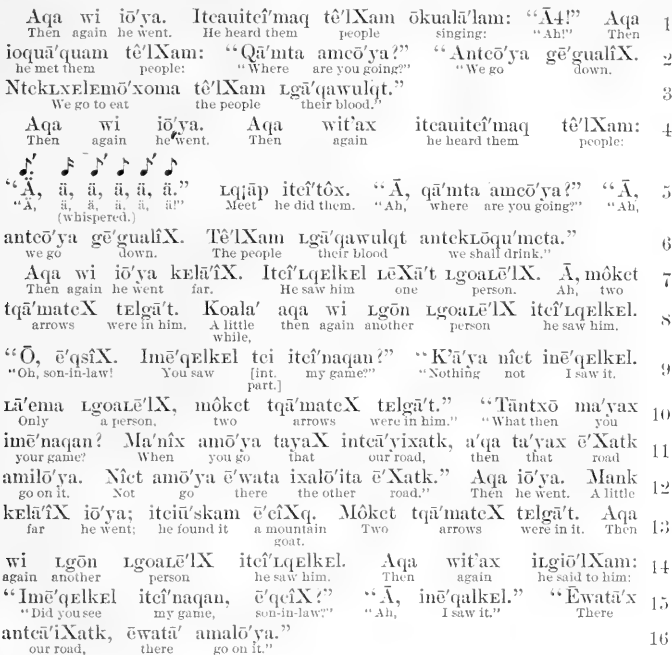 Aqa wi iō'ya. Itcauitcî'maq tê'lXam ōkualā'lam: “Ā4!” Aqa 1
Then again he went. He heard them people singing: “Ah!” Then
ioquā'quam tê'lXam: “Qā'mta amcō'ya?” “Antcō'ya gē'gualîX. 2
he met them people: “Where are you going?” “We go down.
NtckLXElEmō'xoma tê'lXam Lgā'qawulqt.” 3
We go to eat the people their blood.”
Aqa wi iō'ya. Aqa wit'ax itcauitcî'maq tê'lXam: 4
Then again he went. Then again he heard them people:
“Ä, ä, ä, ä, ä, ä.” Lq¡āp itcî'tôx. “Ā, qā'mta amcō'ya?” “Ā, 5
“Ä, ä, ä, ä, ä, ä!” Meet he did them. “Ah, where are you going?” “Ah,
(whispered.)
antcō'ya gē'gualîX. Tê'lXam Lgā'qawulqt antckLōqu'mcta.” 6
we go down. The people their blood we shall drink.”
Aqa wi iō'ya kElā'îX. Itcî'LqElkEl LēXā't LgoaLē'lX. Ā, môkct 7
Then again he went far. He saw him one person. Ah, two
tqā'matcX tElgā't. Koala' aqa wi Lgōn LgoaLē'lX itcî'LqElkEl. 8
arrows were in him. A little then again another person he saw him.
while,
“Ō, ē'qsîX. Imē'qElkEl tci itcî'naqan?” “K'ā'ya nîct inē'qElkEl. 9
“Oh, son-in-law! You saw [int. my game?” “Nothing not I saw it.
part.]
Lā'ema LgoaLē'lX, môkct tqā'matcX tElgā't.” “Tāntxō ma'yax 10
Only a person, two arrows were in him.” “What then you
imē'naqan? Ma'nîx amō'ya tayaX intcā'yixatk, a'qa ta'yax ē'Xatk 11
your game? When you go that our road, then that road
amilō'ya. Nîct amō'ya ē'wata ixalō'ita ē'Xatk.” Aqa iō'ya. Mank 12
go on it. Not go there the other road.” Then he went. A little
kElā'îX iō'ya; itciū'skam ē'cîXq. Môkct tqā'matcX tElgā't. Aqa 13
far he went; he found it a mountain Two arrows were in it. Then
goat.
wi Lgōn LgoaLē'lX itcî'LqElkEl. Aqa wit'ax iLgiō'lXam: 14
again another person he saw him. Then again he said to him:
“Imē'qElkEl itcî'naqan, ē'qcîX?” “Ā, inē'qalkEl.” “Ēwatā'x 15
“Did you see my game, son-in-law?” “Ah, I saw it.” There
antcā'iXatk, ēwatā' amalō'ya.” 16
our road, there go on it.”